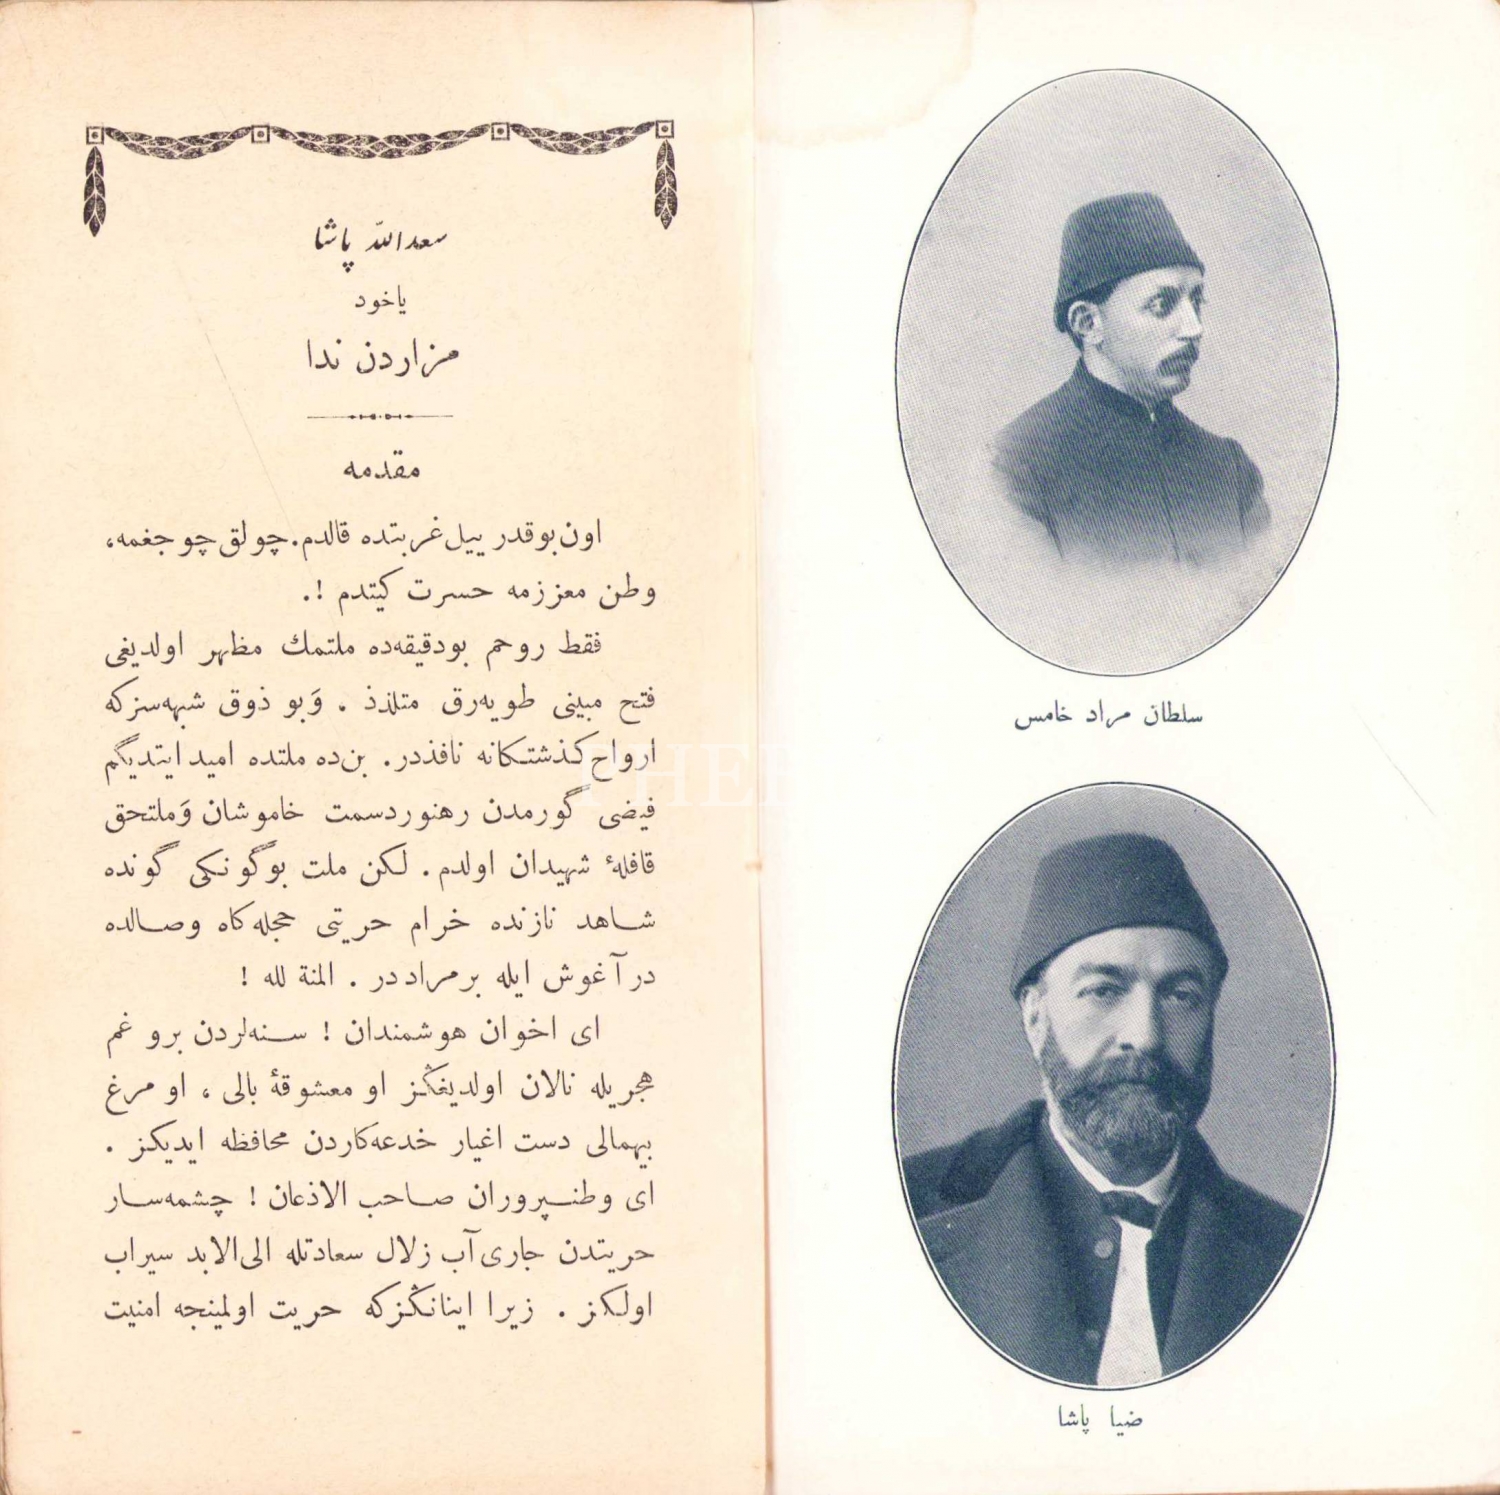 سعدالله پاشا
ياخود
مزاردن ندا
مقدمه
اون بوقدر ييل غربتده قالدم. چولق چوجغمه،
وطن معززمه حسرت كيتدم !.
فقط روحم بودقيقه‌ده ملتمك مظهر اولديغى
فتح مبينى طويه‌رق متلذذ . وَبو ذوق شبهه‌سزكه
ارواح كذشتكانه نافذدر. بن‌ده ملتده اميد ايتديگم
فيضى گورمدن رهنوردسمت خاموشان وَملتحق
قافلهٔ شهيدان اولدم. لكن ملت بوگونكى گونده
شاهد نازنده خرام حريتى حجله‌كاه وصالده
در آغوش ايله برمراددر . المنة لله !
اى اخوان هوشمندان ! سنه‌لردن برو غم
هجريله نالان اولديغڭز او معشوقهٔ بالى ، او مرغ
بيهمالى دست اغيار خدعه‌كاردن محافظه ايديكز .
اى وطنپروران صاحب الاذعان ! چشمه‌سار
حريتدن جارى آب زلال سعادتله الى‌الابد سيراب
اولكز . زيرا اينانڭزكه حريت اولمينجه امنيت
سلطان مراد خامس
ضيا پاشا